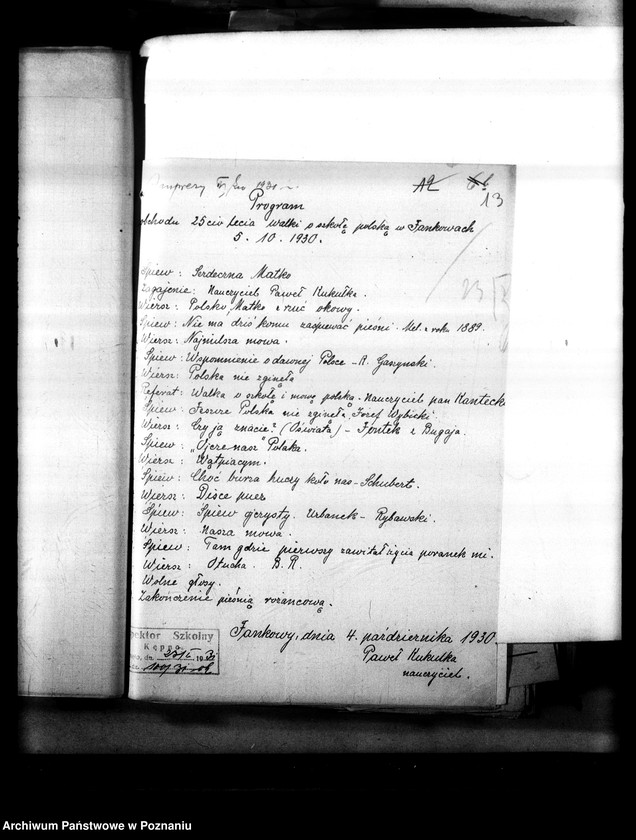 Imprezy
A2 6b
13
Program
obchodu 25cio lecia walki o szkołę polską w Jankowach
5. 10. 1930.
23
Śpiew: Serdeczna Matko
Zagajenie: Nauczyciel Paweł Kukułka.
Wiersz: Polsko, Matko z rzuć okowy.
Śpiew: Nie ma dziś komu zaśpiewać pieśni. Mel. z roku 1889.
Wiersz: Najmilsza mowa.
Śpiew: Wspomnienie o dawnej Polsce - R. Gaszyński.
Wiersz: Polska nie zginęła
Referat: Walka o szkołę i mowę polską. Nauczyciel pan Kanteck
Śpiew: Jeszcze Polska nie zginęła Józef Wybicki.
Wiersz: Czy ją znacie? (Oświata) - Jontek z Bugaja.
Śpiew: "Ojcze nasz" Polski.
Wiersz: Wątpiącym.
Śpiew: Choć burza huczy koło nas - Schubert.
Wiersz: Disce puer
Śpiew: Śpiew ojczysty. Urbanek - Rybawski.
Wiersz: Nasza mowa.
Śpiew: Tam gdzie pierwszy zawitał życia poranek mi.
Wiersz: Otucha. B. R.
Wolne głosy.
Zakończenie pieśnią rożańcową.
Jankowy, dnia 4. października 1930
Paweł Kukułka
nauczyciel.
pektor Szkolny
Kępno
dn. 23/I 1931
Archiwum Państwowe w Poznaniu